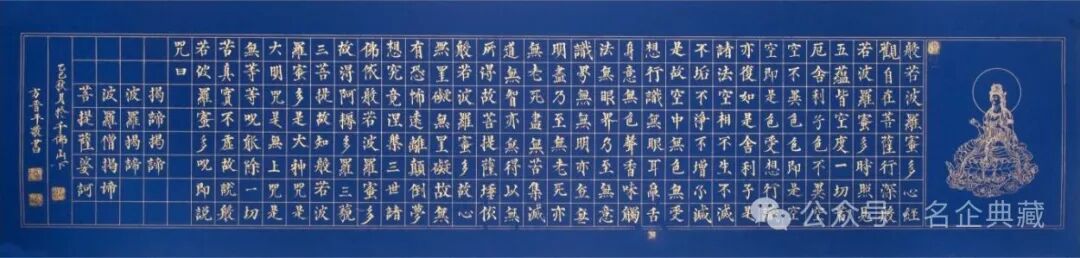 般若波羅蜜多心經
觀自在菩薩行深般
若波羅蜜多時照見
五蘊皆空度一切苦
厄舍利子色不異空
空不異色色即是空
空即是色受想行識
亦復如是舍利子是
諸法空相不生不滅
不垢不淨不增不減
是故空中無色無受
想行識無眼耳鼻舌
身意無色聲香味觸
法無眼界乃至無意
識界無無明亦無無
明盡乃至無老死亦
無老死盡無苦集滅
道無智亦無得以無
所得故菩提薩埵依
般若波羅蜜多故心
無罣礙無罣礙故無
有恐怖遠離顛倒夢
想究竟涅槃三世諸
佛依般若波羅蜜多
故得阿耨多羅三藐
三菩提故知般若波
羅蜜多是大神咒是
大明咒是無上咒是
無等等呪能除一切
苦真實不虛故說般
若波羅蜜多呪即說
咒曰
揭諦揭諦
波羅揭諦
波羅僧揭諦
菩提薩婆訶
乙巳秋月於千佛山下
方晉平敬書
公众号·名企典藏